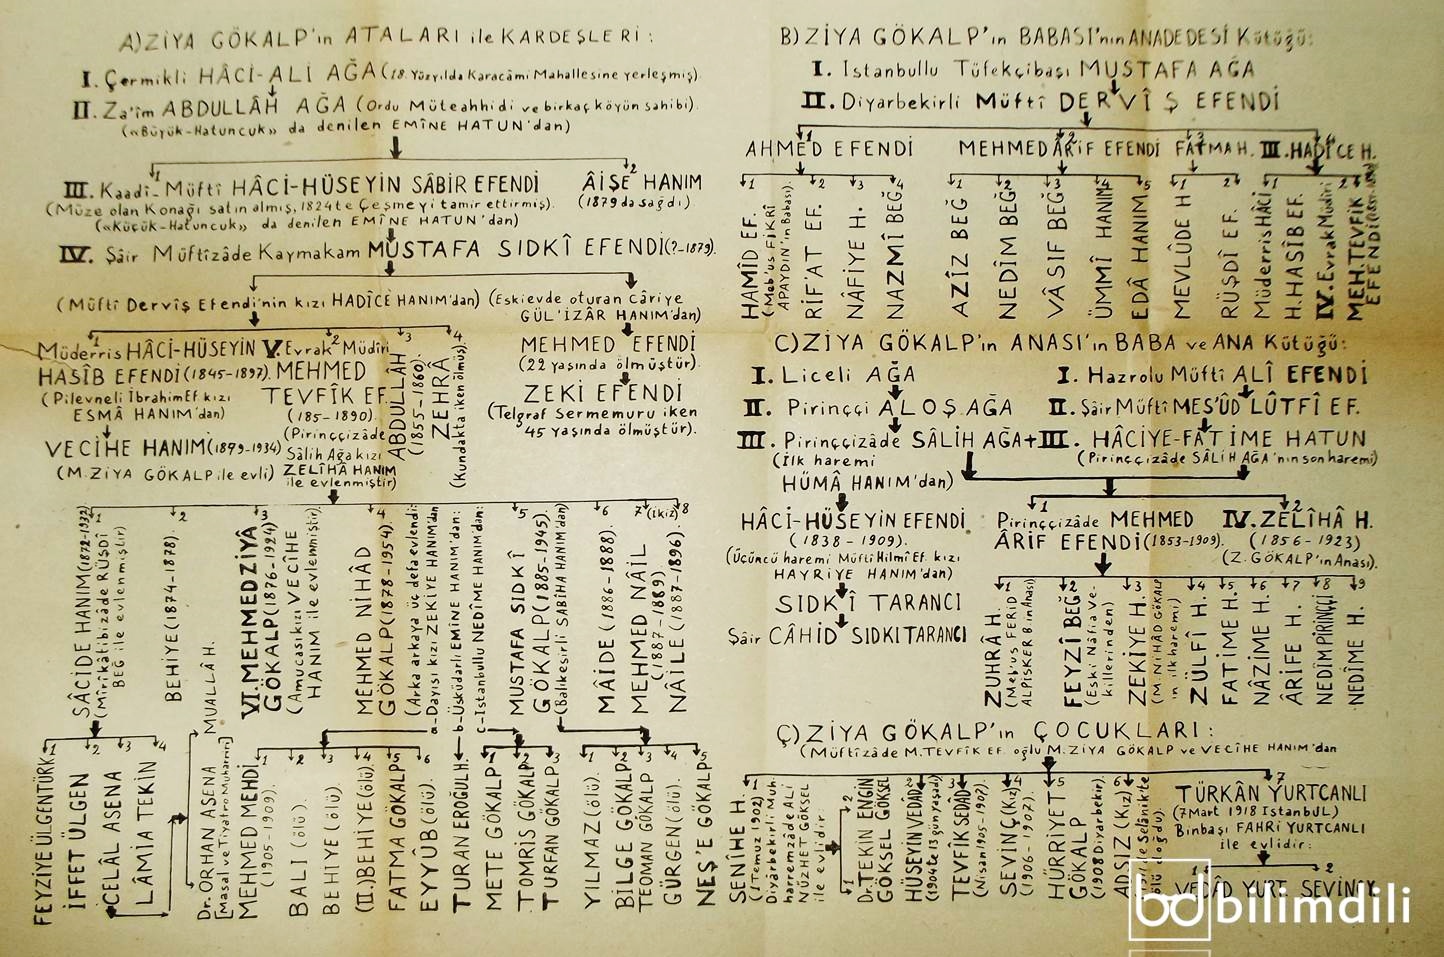 A)ZİYA GÖKALP'ın ATALARI ile KARDEŞLERİ:
I. Çermikli HÂCİ-ALİ AĞA(18.Yüzyılda Karacâmi Mahallesine yerleşmiş).
II. Za'îm ABDULLÂH AĞA (Ordu Müteahhidi ve birkaç köyün sahibi).
(«Büyük-Hatuncuk» da denilen EMİNE HATUN'dan)
1 2
III. Kaadî-Müftî HÂCİ-HÜSEYİN SÂBİR EFENDİ
(Müze olan Konağı satın almış, 1824te Çeşmeyi tamir ettirmiş).
(«Küçük-Hatuncuk» da denilen EMİNE HATUN'dan)
ÂİŞE HANIM
(1879 da sağdı)
IV. Şâir Müftîzâde Kaymakam MUSTAFA SIDKÎ EFENDİ(?-1879).
(Müftî Dervîş Efendi'nin kızı HADÎCE HANIM'dan)
(Eski evde oturan Câriye
GÜL'İZÂR HANIM'dan)
1 2 3 4
Müderris HÂCİ-HÜSEYİN
HASÎB EFENDİ(1845-1897).
(Pilevneli İbrahim Ef. kızı
ESMÂ HANIM'dan)
VECİHE HANIM(1879-1934)
(M.ZİYA GÖKALP ile evli)
V. Evrak Müdiri
MEHMED
TEVFÎK EF.
(185-1890).
(Pirinççizâde
Sâlih Ağa kızı
ZELÎHÂ HANIM
ile evlenmiştir)
ABDULLÂH
(1855-1860).
ZEHRÂ
(Kundakta iken ölmüş).
MEHMED EFENDİ
(22 yaşında ölmüştür).
ZEKİ EFENDİ
(Telgraf Sermemuru iken
45 yaşında ölmüştür).
1 2 3 4 5 6 7 (ikiz) 8
SÂCİDE HANIM(1872-1932)
(Mîrikâtibizâde RÜŞDÎ
BEĞ ile evlenmiştir)
BEHİYE (1874-1878).
VI. MEHMED ZİYÂ
GÖKALP(1876-1924)
(Amucası kızı VECİHE
HANIM ile evlenmiştir).
MEHMED NİHÂD
GÖKALP(1878-1954).
(Arka arkaya üç defa evlendi:
a-Dayısı kızı ZEKİYE HANIM'dan
b-Üsküdarlı EMİNE HANIM'dan:
c-İstanbullu NEDÎME HANIM'dan:
MUSTAFA SIDKÎ
GÖKALP(1885-1945).
(Balıkesirli SABİHA HANIM'dan)
MÂİDE (1886-1888).
MEHMED NÂİL
(1887-1889)
NÂİLE (1887-1896).
1 2 3 4
FEYZİYE ÜLGENTÜRK
İFFET ÜLGEN
CELÂL ASENA
LÂMİA TEKİN
MUALLÂ H.
Dr. ORHAN ASENA
[Masal ve Tiyatro Muharriri]
1 2 3 4 5 6
MEHMED MEHDİ
(1905-1909).
BALI (ölü).
BEHİYE (ölü).
(II.)BEHİYE (ölü)
FATMA GÖKALP
EYYÛB(ölü).
TURAN EROĞULH.
1 2 3
METE GÖKALP
TOMRİS GÖKALP
TURFAN GÖKALP
1 2 3 4 5
YILMAZ (ölü).
BİLGE GÖKALP
TEOMAN GÖKALP
GÜRGEN (ölü).
NEŞ'E GÖKALP
B) ZİYA GÖKALP'ın BABASI'nın ANADEDESİ Kütüğü:
I. İstanbullu Tüfekçibaşı MUSTAFA AĞA
II. Diyarbekirli Müftî DERVÎŞ EFENDİ
1 2 3 4
AHMED EFENDİ MEHMED ÂRİF EFENDİ FATMA H. III. HADÎCE H.
1 2 3 4
HAMÎD EF.
(Meb'us FİKRÎ
APAYDIN'ın Babası).
RİF'AT EF.
NÂFİYE H.
NAZMÎ BEĞ
1 2 3 4 5
AZÎZ BEĞ
NEDÎM BEĞ
VÂSIF BEĞ
ÜMMÎ HANIM
EDÂ HANIM
1 2
MEVLÛDE H.
RÜŞDÎ EF.
1 2
Müderris HÂCİ
H. HASÎB EF.
IV. Evrak Müdiri
MEH. TEVFÎK
EFENDİ
C)ZİYA GÖKALP'ın ANASI'ın BABA ve ANA Kütüğü:
I. Liceli AĞA
II. Pirinççi ALOŞ AĞA
III. Pirinççizâde SÂLİH AĞA+
(İlk haremi
HÜMÂ HANIM'dan)
I. Hazrolu Müftî ALÎ EFENDİ
II. Şâir Müftî MES'ÛD LÛTFÎ EF.
III. HÂCİYE-FATİME HATUN
(Pirinççizâde SÂLİH AĞA'nın son haremi)
HÂCİ-HÜSEYİN EFENDİ
(1838-1909).
(Üçüncü haremi Müftî Hilmi Ef. kızı
HAYRİYE HANIM'dan)
SIDKÎ TARANCI
Şâir CÂHİD SIDKI TARANCI
1 2
Pirinççizâde MEHMED
ÂRİF EFENDİ(1853-1909).
IV. ZELÎHÂ H.
(1856-1923)
(Z.GÖKALP'ın Anası).
1 2 3 4 5 6 7 8 9
ZUHRÂ H.
(Meb'us FERİD
ALPİSKER B.in Anası)
FEYZÎ BEĞ
(Eski Nâfia Ve-
killerinden)
ZEKİYE H.
(M.NİHÂD GÖKALP
'ın ilk haremi)
ZÜLFÎ H.
FATIME H.
NÂZİME H.
ÂRİFE H.
NEDİM PİRİNÇÇİ
NEDÎME H.
Ç)ZİYA GÖKALP'ın ÇOCUKLARI:
(Müftîzâde M.TEVFÎK EF. oğlu M.ZİYA GÖKALP ve VECÎHE HANIM'dan
1 2 3 4 5 6 7
SENİHE H.
(1 Temuz 1902)
Diyarbekirli Müh.
harremzâde ALİ
NÜZHET GÖKSEL
ile evlidir:
1 2
Dr. TEKİN ENGİN
GÖKSEL GÖKSEL
HÜSEYİN VEDAD
(1904te 13 gün yaşadı)
TEVFÎK SEDAD
(Nisan 1905-1907).
SEVİNÇ(Kız)
(1906-1907).
HÜRRİYET
GÖKALP
(1908 Diyarbekir).
ADSIZ (Kız)
ile Selânikte
ölü doğdu).
TÜRKÂN YURTCANLI
(7 Mart 1918 İstanbul)
Binbaşı FAHRİ YURTCANLI
ile evlidir:
1 2
VEDÂD YURT. SEVİNÇ Y.
bd bilimdili